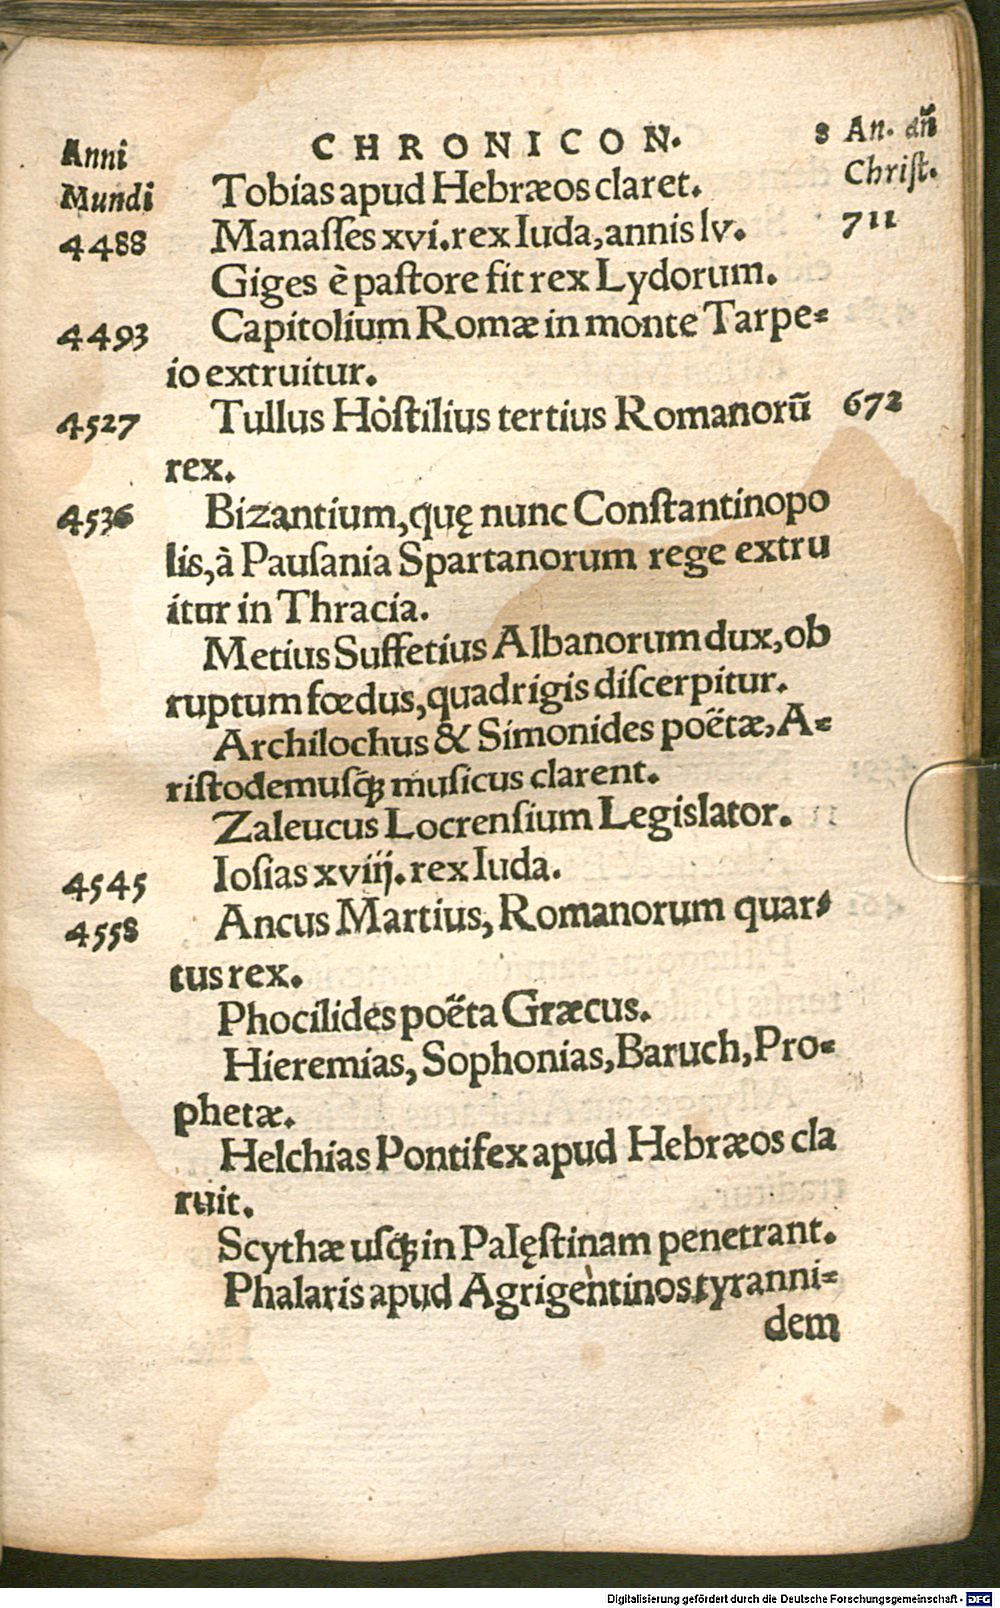 Anni CHRONICON. 8 An. añ
Mundi Tobias apud Hebræos claret. Chriſt.
4488 Manaſſes xvi. rex Iuda, annis lv. 711
Giges è paſtore fit rex Lydorum.
4493 Capitolium Romæ in monte Tarpe=
io extruitur.
4527 Tullus Hoſtilius tertius Romanorũ 672
rex.
4536 Bizantium, quę nunc Conſtantinopo
lis, à Pauſania Spartanorum rege extru
itur in Thracia.
Metius Suffetius Albanorum dux, ob
ruptum fœdus, quadrigis diſcerpitur.
Archilochus & Simonides poëtæ, A=
riſtodemusq́ꝫ muſicus clarent.
Zaleucus Locrenſium Legislator.
4545 Ioſias xviij. rex Iuda.
4558 Ancus Martius, Romanorum quar=
tus rex.
Phocilides poëta Græcus.
Hieremias, Sophonias, Baruch, Pro=
phetæ.
Helchias Pontifex apud Hebræos cla
ruit.
Scythæ uſq́ꝫ in Palęſtinam penetrant.
Phalaris apud Agrigentinos tyranni=
dem
Digitalisierung gefördert durch die Deutsche Forschungsgemeinschaft - DFG